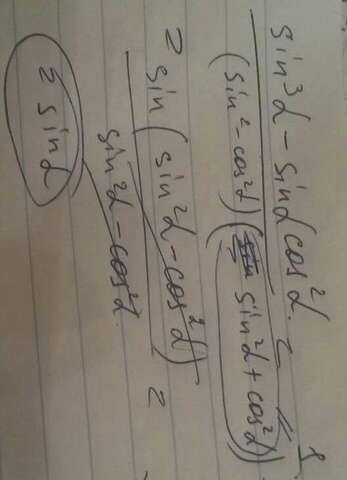 sin³α - sinαcos²α
(sin² - cos²α)(sin²α + cos²α) =
1
= sin(sin²α - cos²α)
sin²α - cos²α =
= sinα